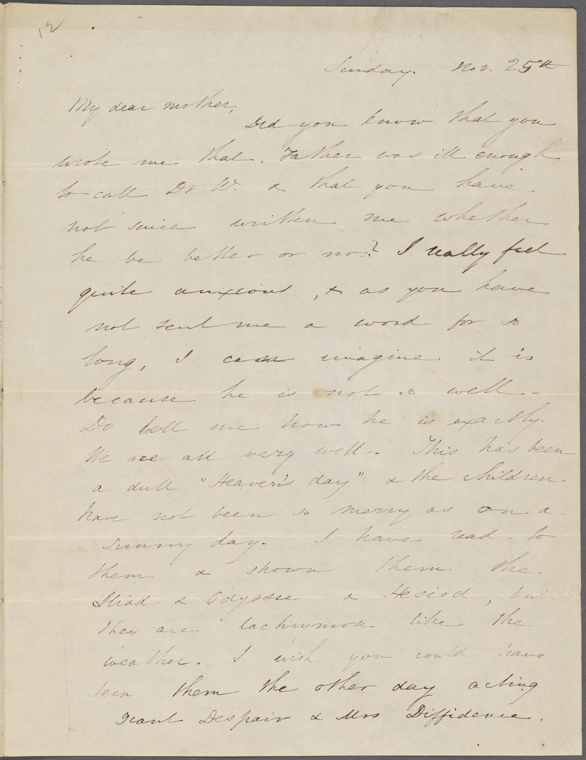 12
Sunday. Nov. 25th
My dear mother,
Did you know that you
wrote me that Father was ill enough
to call Dr W. & that you have
not since written me whether
he be better or no? I really feel
quite anxious, & as you have
not sent me a word for so
long, I can imagine it is
because he is not so well.
Do tell me how he is exactly.
We are all very well. This has been
a dull "Heaven's day" & the children
have not been so merry as on a
sunny day. I have read to
them & shown them the
Iliad & Odyssee & Hesiod, but
they are lachrymose like the
weather. I wish you could have
seen them the other day acting
Giant Despair & Mrs Diffidence.